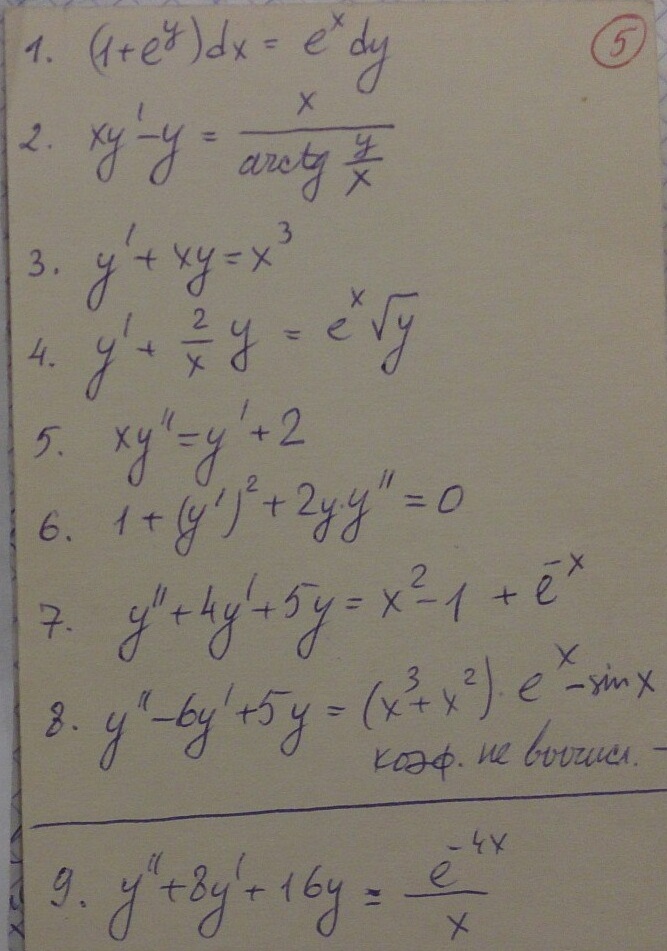 5
1. (1+e^y)dx = e^x dy
2. xy' - y = x / arctg y/x
3. y' + xy = x^3
4. y' + 2/x y = e^x √y
5. xy'' = y' + 2
6. 1 + (y')^2 + 2y·y'' = 0
7. y'' + 4y' + 5y = x^2 - 1 + e^-x
8. y'' - 6y' + 5y = (x^3 + x^2)·e^x - sin x
коэф. не вычисл. -
9. y'' + 8y' + 16y = e^-4x / x